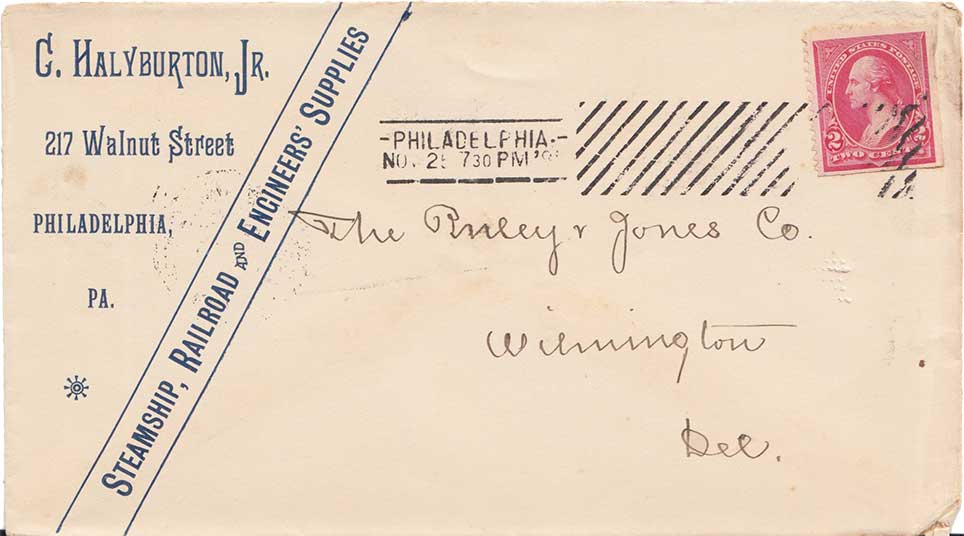 C. HALYBURTON, JR.
217 Walnut Street
PHILADELPHIA,
PA.
STEAMSHIP, RAILROAD AND ENGINEERS' SUPPLIES
-PHILADELPHIA-
NOV 25 7 30 PM '9
UNITED STATES POSTAGE
2 2
TWO CENTS
The Pusey & Jones Co.
Wilmington
Del.